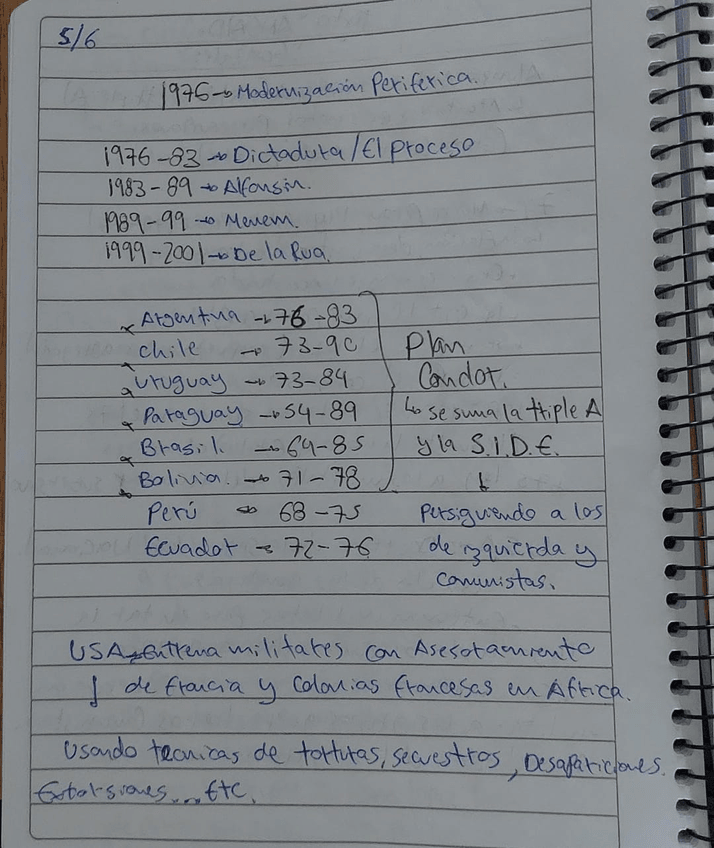 5/6
1976 → Modernización Periferica.
1976-83 → Dictadura/El proceso
1983-89 → Alfonsin.
1989-99 → Menem.
1999-2001 → De la Rua.
Argentina → 76-83
Chile → 73-90
Uruguay → 73-84
Paraguay → 54-89
Brasil. → 64-85
Bolivia. → 71-78
Perú → 68-75
Ecuador → 72-76
Plan
Condor.
↳ se suma la triple A
y la S.I.D.E.
↓
Persiguiendo a los
de izquierda y
comunistas.
USA → Entrena militares con Asesoramiento
↓ de francia y Colonias francesas en África.
Usando tecnicas de torturas, secuestros, Desapariciones.
Extorsiones... Etc.